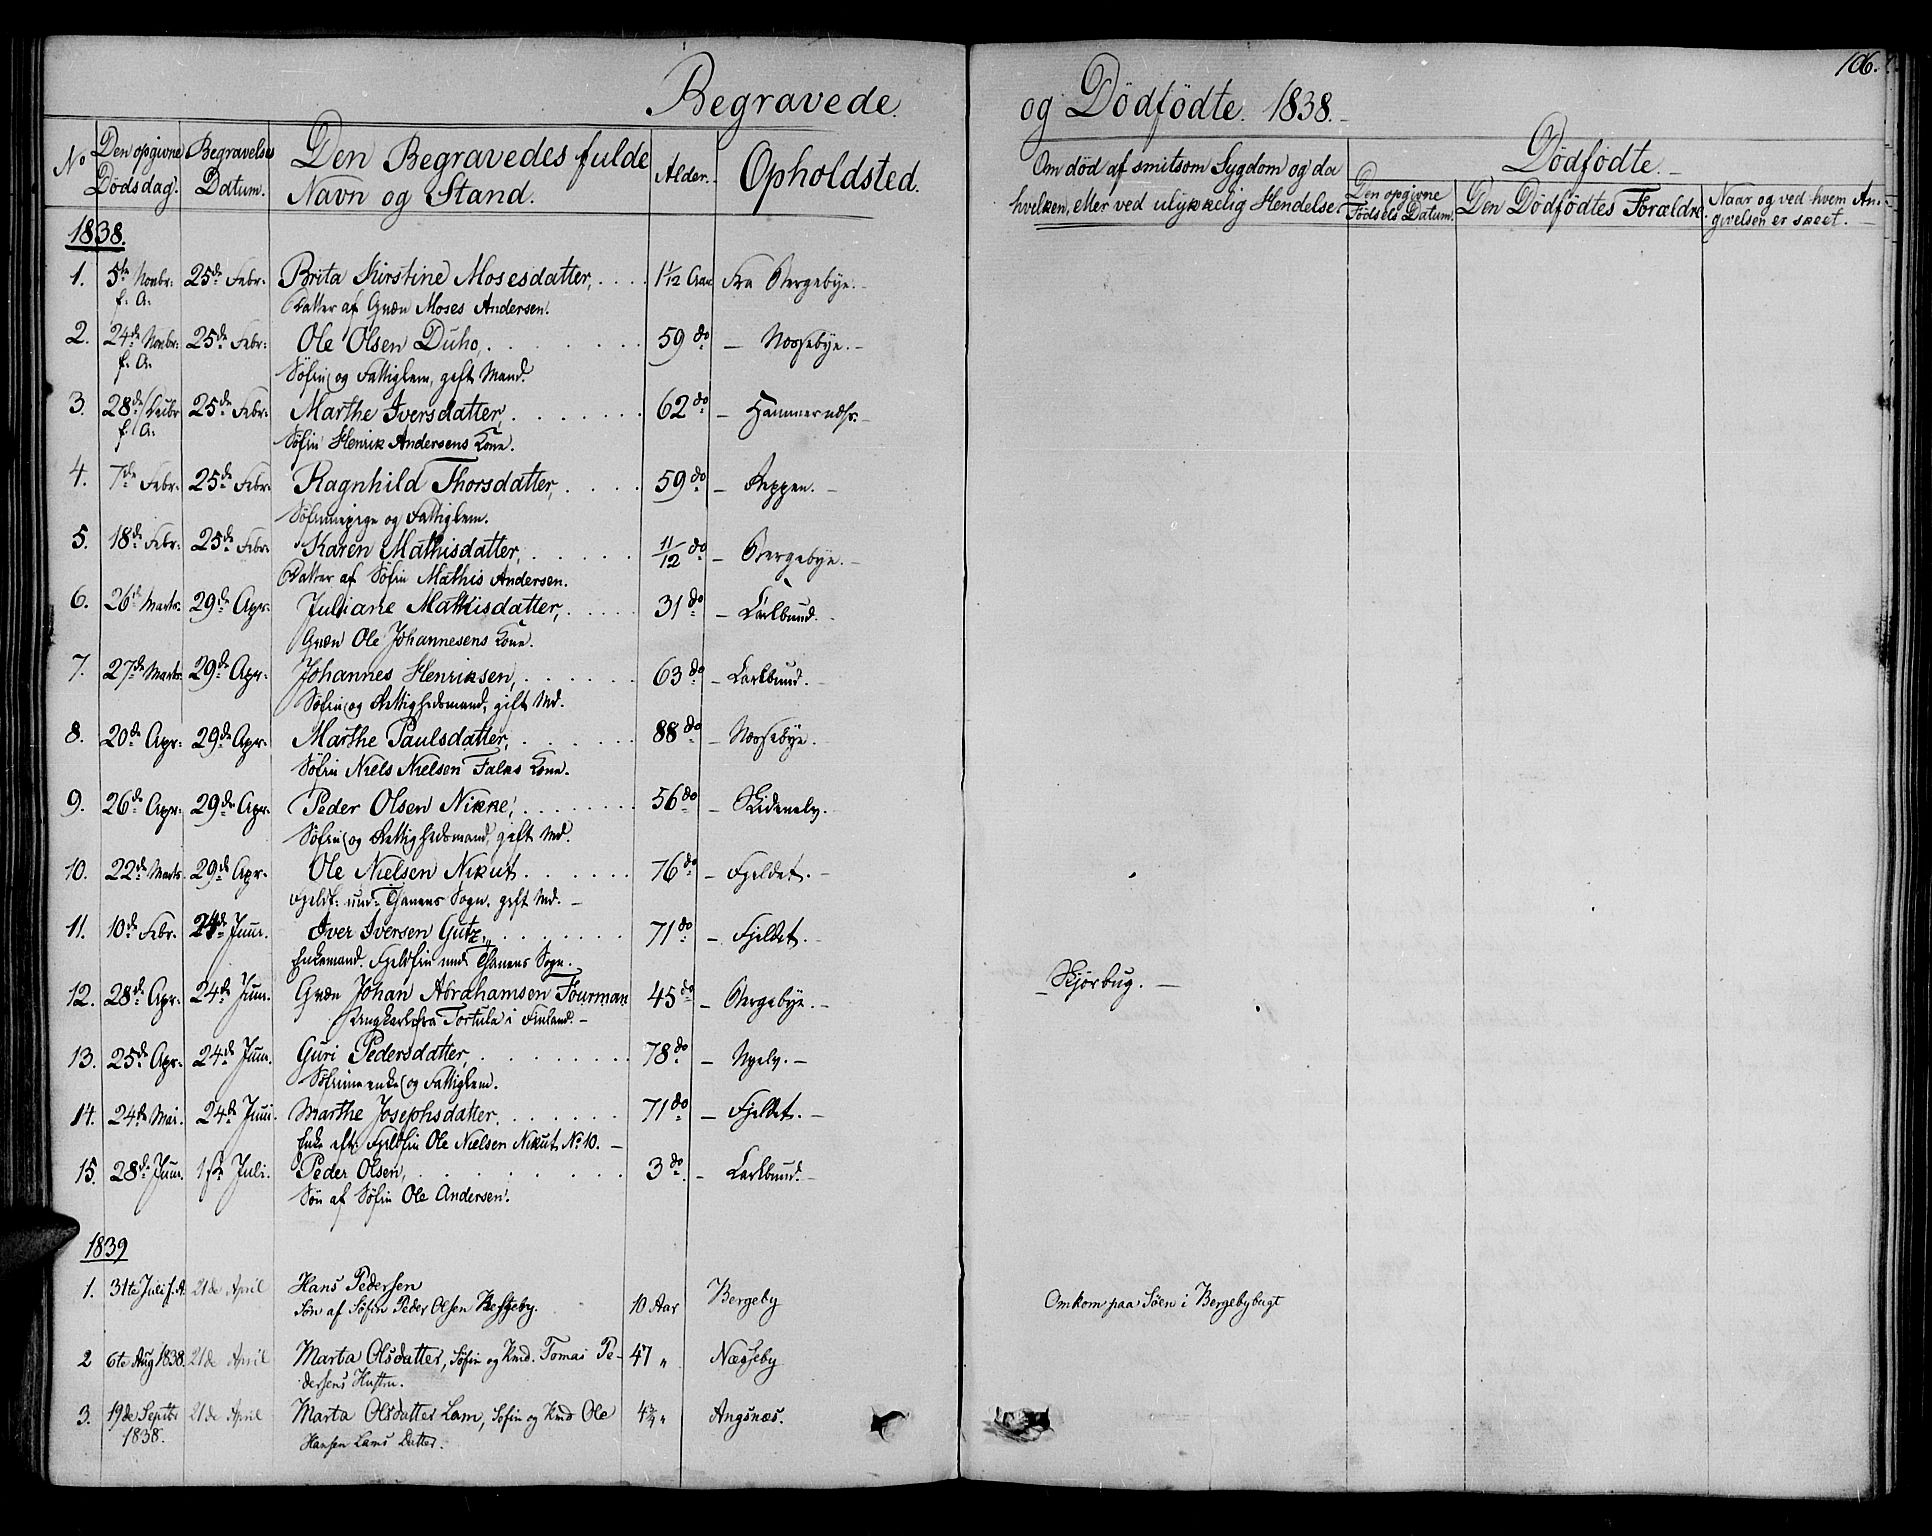 Begravede og Dödfödte. 1838.
106.
No
Den opgivne Dödsdag.
Begravelses Datum.
Den Begravedes fulde Navn og Stand.
Alder.
Opholdsted.
Om död af smitsom Sygdom og da hvilken, eller ved ulykkelig Hendelse.
Dödfödte.
Den opgivne Födsels Datum.
Den Dödfödtes Forældre
Naar og ved hvem Angivelsen er skeet.
1838.
1. 5te Novbr. f. A. 25de Febr. Brita Kirstine Mosesdatter, 1 1/12 Aar Fra Bergebye.
Datter af Qvæn Moses Andersen.
2. 24de Novbr. f. A. 25de Febr. Ole Olsen Duho, 59 do - Nessebye.
Söfin og Fattiglem, gift Mand.
3. 28de Decbr f. A. 25de Febr. Marthe Iversdatter, 62 do - Hammernæs.
Söfin Henrik Andersens Kone.
4. 7de Febr. 25de Febr. Ragnhild Thorsdatter, 59 do - Reppen.
Söfinnepige og Fattiglem.
5. 18de Febr. 25de Febr. Karen Mathisdatter, 11/12 do - Bergebye.
Datter af Söfin Mathis Andersen.
6. 26de Marts. 29de Apr. Juliane Mathisdatter, 31 do - Carlbund.
Qvæn Ole Johannesens Kone.
7. 27de Marts. 29de Apr. Johannes Henriksen, 63 do - Carlbund.
Söfin og Rettighedsmand, gift Md.
8. 20de Apr. 29de Apr. Marthe Paulsdatter, 88 do - Nessebye.
Söfin Niels Nielsen Falks Kone.
9. 26de Apr. 29de Apr. Peder Olsen Nikke, 56 do - Kidenelv.
Söfin og Rettighedsmand, gift Md.
10. 22de Marts. 29de Apr. Ole Nielsen Nikut. 76 do - Fjeldet.
Fjeldf. und. Thanens Sogn. gift Md.
11. 10de Febr. 24de Juni. Iver Iversen Gutz, 71 do - Fjeldet.
Enkemand. Fjeldfin und. Thanens Sogn.
12. 28de Apr. 24de Juni. Qvæn Johan Abrahamsen Fourman 45 do - Bergebye. - Skjörbug.
Ungkarl fra Tortula i Finland.
13. 25de Apr. 24de Juni. Guri Pedersdatter, 78 do - Nyelv.
Söfinneenke og Fattiglem.
14. 24de Mai. 24de Juni. Marthe Josephsdatter. 71 do - Fjeldet.
Enke eft. Fjeldfin Ole Nielsen Nikut No 10.
15. 28de Juni. 1ste Juli. Peder Olsen, 3 do - Carlbund.
Sön af Söfin Ole Andersen.
1839
1. 31te Juli f. A. 21de April Hans Pedersen
Sön af Söfin Peder Olsen Bergeby. 10 Aar Bergeby Omkom paa Söen i Bergebybugt
2 6te Aug 1838. 21de April Marta Olsdatter, Söfin og Rmd. Tomas Pe- 47 " Næsseby
dersens Hustru.
3. 19de Septbr 1838. 21de April Marta Olsdatter Lam, Söfin og Rmd Ole 4 3/4 " Angsnæs.
Hansen Lams Datter.